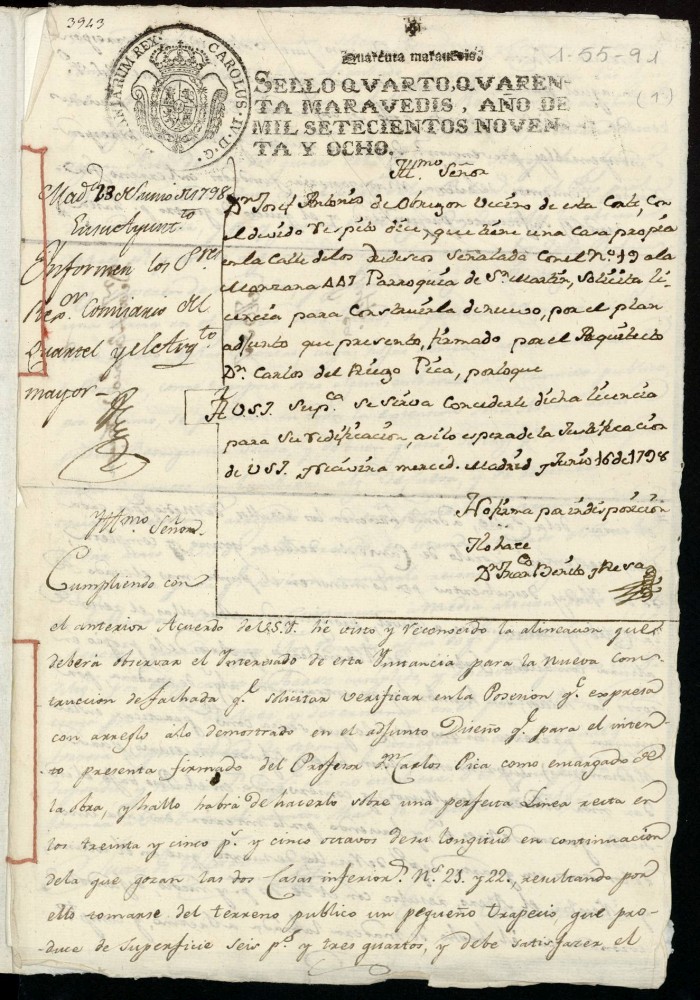 3943
1-55-91
(1)
Quarenta maravedis.
CAROLUS·IV·D·G·
IARUM REX
SELLO QVARTO, QVAREN-
TA MARAVEDIS, AÑO DE
MIL SETECIENTOS NOVEN-
TA Y OCHO.
Mad.d 23 de Junio de 1798
En su Ayunt.to
Informen los S.res
Re.or Comisario del
Quartel y el Arq.to
mayor-
Ill.mo Señor
D.n Josef Antonio de Obregon Vecino de esta Corte, con
el devido respeto dice, que tiene una casa propia
en la Calle de los señalada con el N.o 19 a la
Manzana 447 Parroquia de S.n Martin, solicita li
cencia para Construirla de nuevo, por el plan
adjunto que presento, firmado por el Arquitecto
D.n Carlos del Riego Pica, por lo que
A V.S.I. Sup.ca se sirva Concederle dicha licencia
para su redificacion, asi lo espera de la Justificacion
de V.S.I. Madrid y Junio 16 de 1798
No firma por indisposicion
Ilo hace
D.n Fran.co Benito y Resa
Ill.mo Señor.
Cumpliendo con
el anterior Acuerdo de V.S.I. he visto y reconocido la alineacion que
deberá observar el Interesado de esta Instancia para la nueva cons-
truccion de fachada q.e solicitar verificar en la Posesion q.e expresa
con arreglo á lo demostrado en el adjunto Diseño q.e para el inten-
to presenta firmado del Profesor d.n Carlos Pica como encargado de
la obra, y hallo habrá de hacerlo sobre una perfecta Linea recta en
los treinta y cinco p.s y cinco octavos de su longitud en continuacion
de la que gozan las dos Casas inferior.s N.s 21. y 22., resultando por
ello tomarse del terreno publico un pequeño trapecio, que pro-
duce de superficie seis p.s y tres quartos, y debe satisfazer el